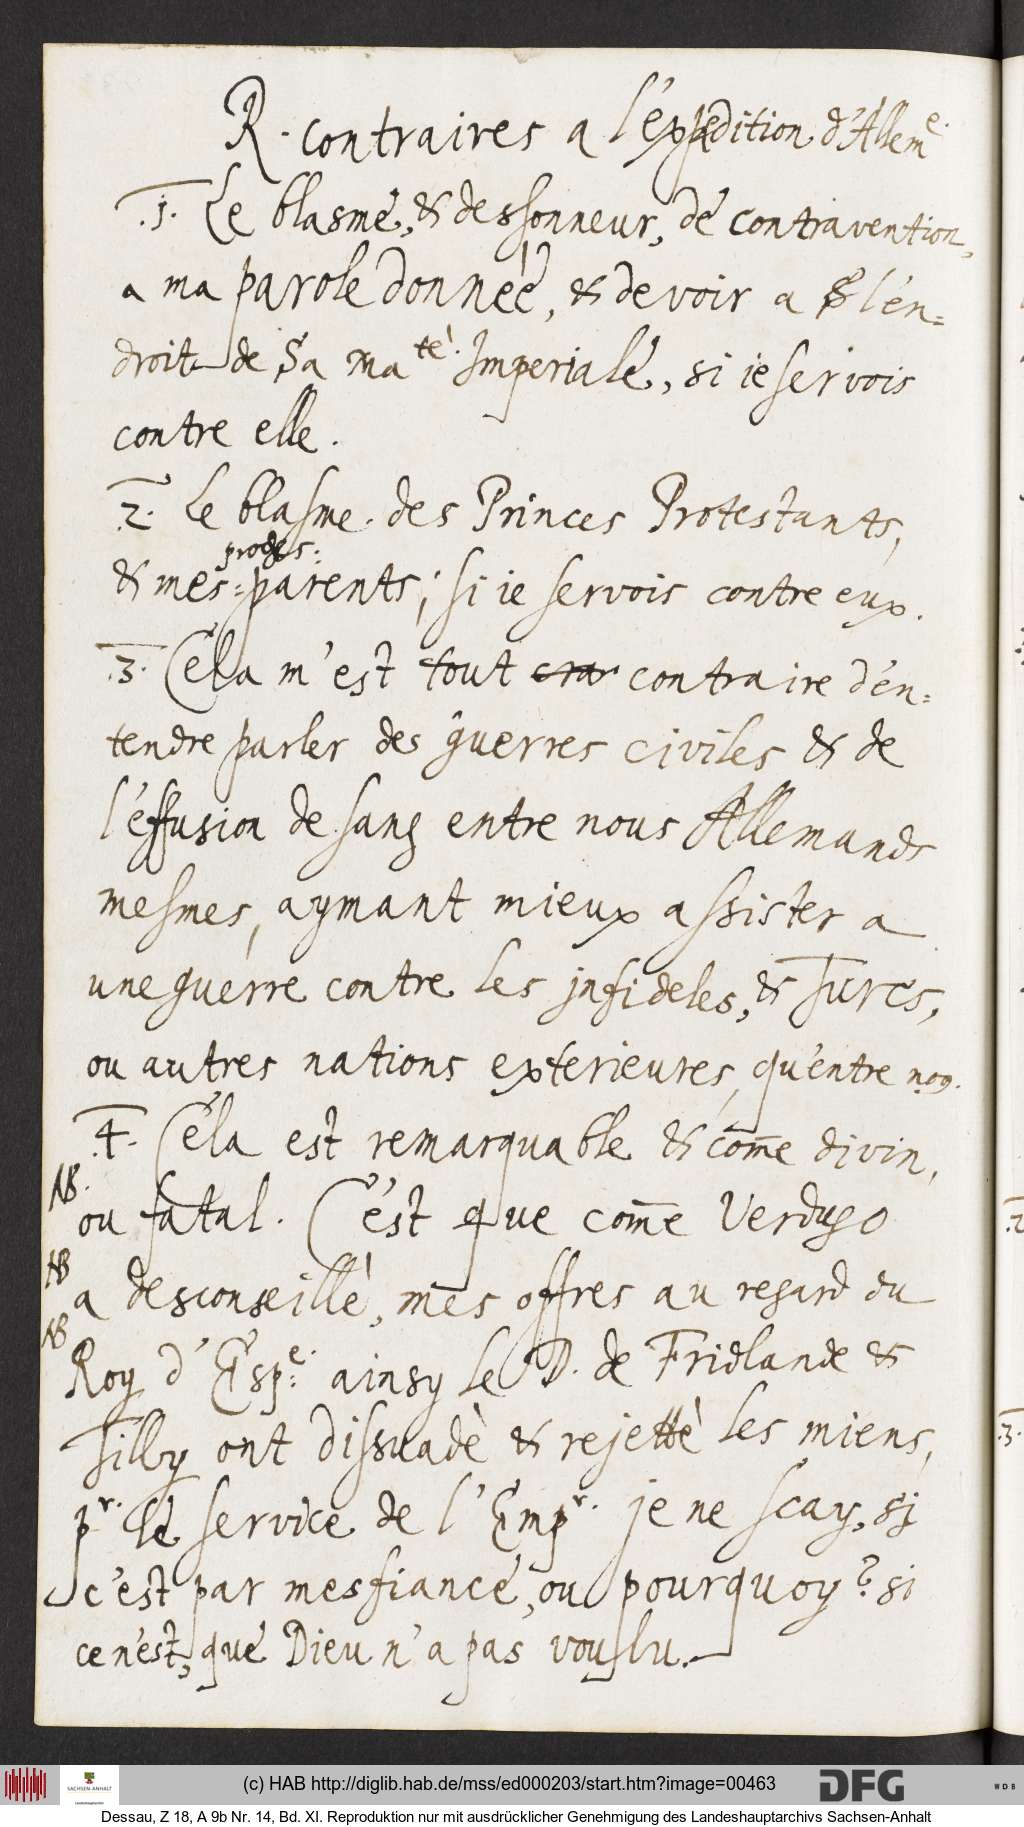 R. contraires a l'expedition d'Alleme.
.1. Le blasme, & desHonneur, de contravention,
a ma parole donnée, & devoir a S l'en=
droit de Sa Ma.tè Imperiale, si ie servois
contre elle.
.2. Le blasme des Princes Protestants,
proches:
& mes= parents; si ie servois contre eux.
.3. Cela m'est tout contraire d'en=
tendre parler des guerres civiles & de
l'effusion de sang entre nous Allemands
mesmes, aymant mieux assister a
une guerre contre les jnfideles, & Turcs,
ou autres nations exterieures, qu'entre no9.
.4. Cela est remarquable & com̅e divin,
NB.
ou fatal. C'est que com̅e Verdugo
NB
a desconseillè, mes offres au regard du
NB
Roy d'Espe: ainsy le D. de Fridlande &
Tilly ont dissuadè & rejettè les miens,
pr. le service de l'Empr. je ne scay, si
c'est par mesfiance, ou pourquoy? si
ce n'est, que Dieu n'a pas voulu.
.2
.3.
(c) HAB http://diglib.hab.de/mss/ed000203/start.htm?image=00463
SACHSEN-ANHALT
DFG
WDB
Dessau, Z 18, A 9b Nr. 14, Bd. XI. Reproduktion nur mit ausdrücklicher Genehmigung des Landeshauptarchivs Sachsen-Anhalt